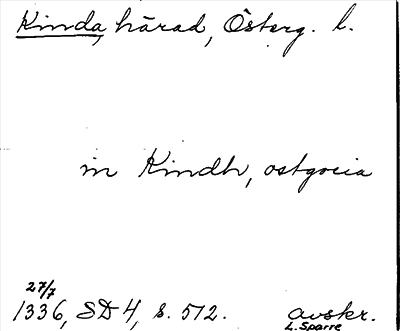 Kinda, härad, Österg. l.
in Kindh, ostgocia
27/7
1336, SD 4, s. 572. avskr.
L. Sparre